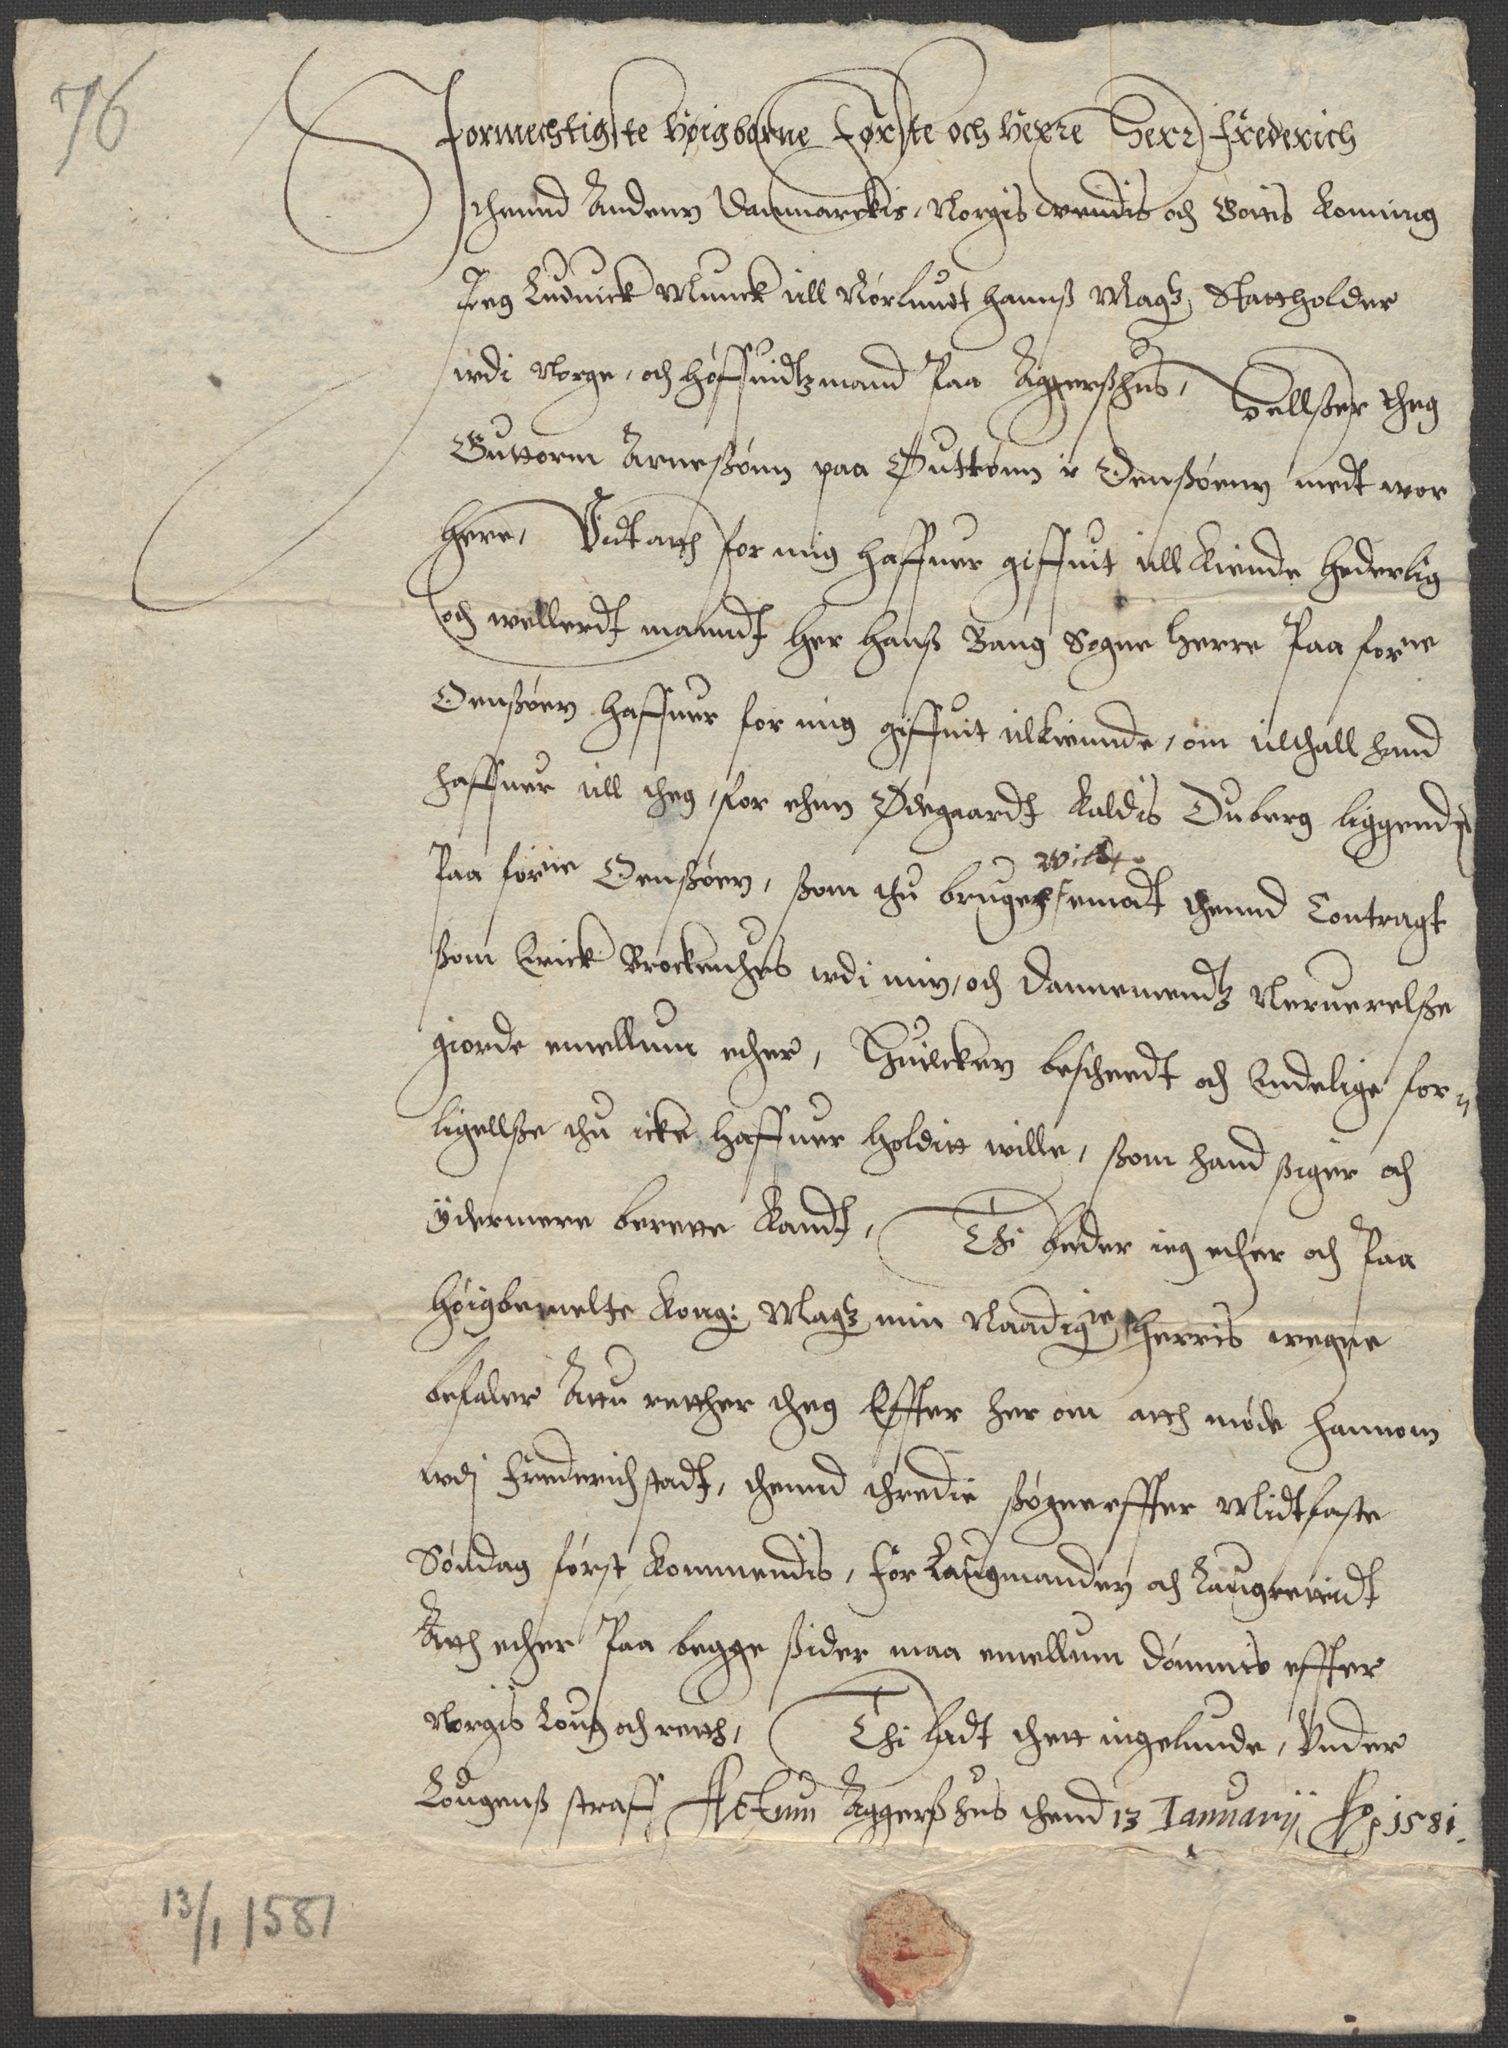 76
Stormechtigste Høigborne Første och Herre Herr Frederich
thennd Andenn Danmarckis, Norgis Wendis och Gottis Konning
Jeg Luduick Munck till Nørlundt hannß Magtz Stattholder
wdi Norge, och Høffuidtzmand Paa Aggerßhus, Hellßer theg
Guttorm Arneßønn paa Øuttønn i Onnßøenn medt wor
herre, Vidt atth for mig haffuer giffuit till kiende hederlig
och wellerdt manndt Her Hanß Bang Sogne Herre Paa forne
Onnßøen haffuer for mig giffuit tilkiennde, om tilthall hand
haffuer till theg, for ehnn Ødegaardt kaldis Duberg liggendis
Paa forne Onnßøen, ßom thu bruger emodt thennd Contragt
wilde
ßom Erick Brockenhus wdi min, och Dannemendtz Neruerelße
giorde emellum ether, Huilcken bescheedt och Endelige for=
ligellße thu icke haffuer holditt wille, ßom hand ßiger och
ydermere berette kandt, Thi beder ieg ether och Paa
høigbemelte Kong: Magtz min Naadigste Herris wegne
befaler Attu retther theg Effter her om atth møde hannom
wdj Frederichstadt, thennd thredie ßøgneeffter Midtfaste
Søndag først kommendis, for Laugmanden och Laugrettidt
Atth ether Paa begge ßider maa emellum dømmis effter
Norgis Loug och retth, Thi ladt thett ingelunde, Vnder
Lougenß straff Actum Aggerßhus thend 13 Ianuarij Ao 1581.
13/1 1581